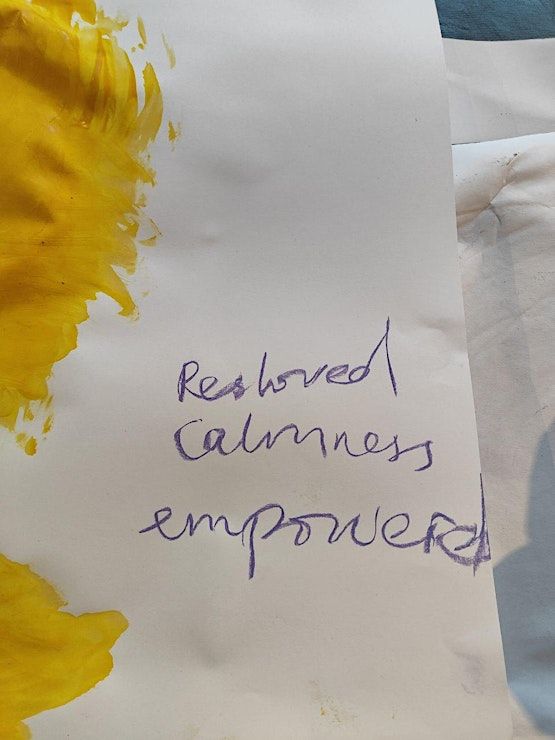 Restored
Calmness
empowered